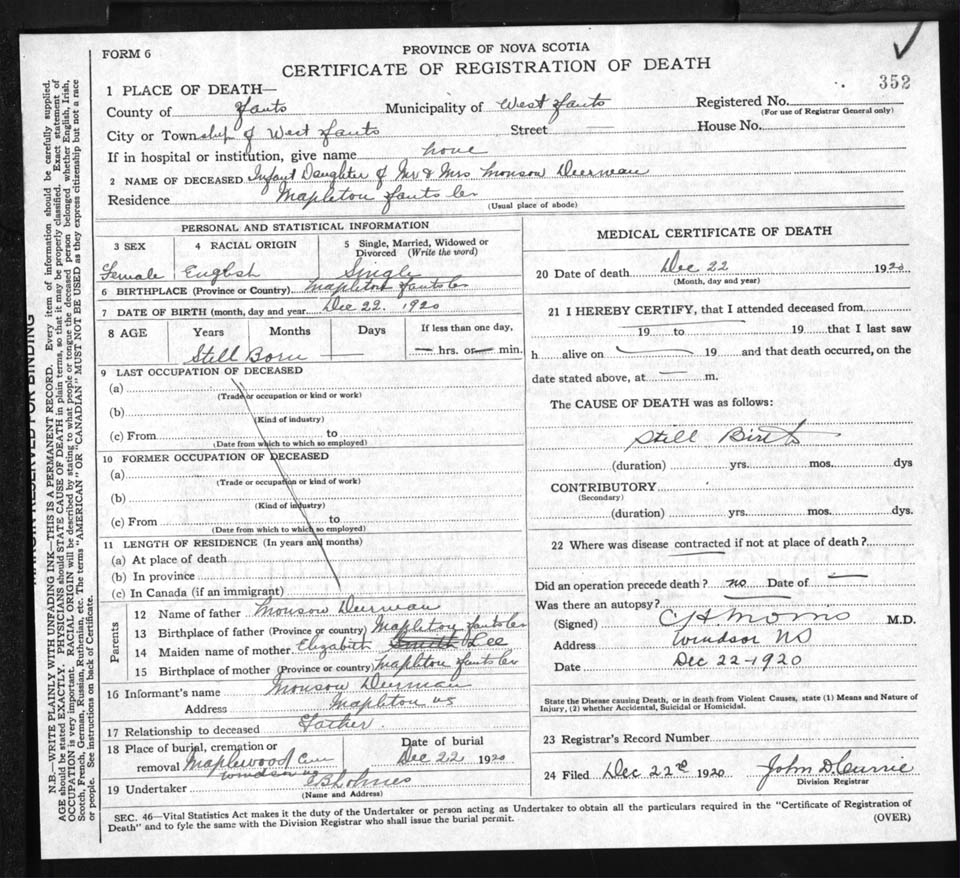 FORM 6
PROVINCE OF NOVA SCOTIA
CERTIFICATE OF REGISTRATION OF DEATH
352
1 PLACE OF DEATH—
County of Hants Municipality of West Hants Registered No.
(For use of Registrar General only)
City or Township of West Hants Street House No.
If in hospital or institution, give name home
2 NAME OF DECEASED Infant Daughter of Mr & Mrs Monson Deerman
Residence Mapleton Hants Co
(Usual place of abode)
PERSONAL AND STATISTICAL INFORMATION
3 SEX 4 RACIAL ORIGIN 5 Single, Married, Widowed or Divorced (Write the word)
Female English Single
6 BIRTHPLACE (Province or Country) Mapleton Hants Co
7 DATE OF BIRTH (month, day and year) Dec 22. 1920
8 AGE Years Months Days If less than one day,
Still Born — — hrs. or — min.
9 LAST OCCUPATION OF DECEASED
(a)
(Trade or occupation or kind or work)
(b)
(Kind of industry)
(c) From to
(Date from which to which so employed)
10 FORMER OCCUPATION OF DECEASED
(a)
(Trade or occupation or kind of work)
(b)
(Kind of industry)
(c) From to
(Date from which to which so employed)
11 LENGTH OF RESIDENCE (In years and months)
(a) At place of death
(b) In province
(c) In Canada (if an immigrant)
Parents
12 Name of father Monson Deerman
13 Birthplace of father (Province or country) Mapleton Hants Co
14 Maiden name of mother Elizabeth Smith Lee
15 Birthplace of mother (Province or country) Mapleton Hants Co
16 Informant's name Monson Deerman
Address Mapleton NS
17 Relationship to deceased Father.
18 Place of burial, cremation or Date of burial
removal Maplewood Cem Dec 22 1920
Windsor NS
19 Undertaker Holmes
(Name and Address)
MEDICAL CERTIFICATE OF DEATH
20 Date of death Dec 22 1920
(Month, day and year)
21 I HEREBY CERTIFY, that I attended deceased from
19 to 19 that I last saw
h alive on 19 and that death occurred, on the
date stated above, at — m.
The CAUSE OF DEATH was as follows:
Still Birth
(duration) yrs. mos. dys
CONTRIBUTORY
(Secondary)
(duration) yrs. mos. dys.
22 Where was disease contracted if not at place of death?
Did an operation precede death? no Date of —
Was there an autopsy?
(Signed) C H Morris M.D.
Address Windsor NS
Date Dec 22-1920
State the Disease causing Death, or in death from Violent Causes, state (1) Means and Nature of
Injury, (2) whether Accidental, Suicidal or Homicidal.
23 Registrar's Record Number
24 Filed Dec 22nd 1920 John D Currie
Division Registrar
SEC. 46—Vital Statistics Act makes it the duty of the Undertaker or person acting as Undertaker to obtain all the particulars required in the "Certificate of Registration of
Death" and to fyle the same with the Division Registrar who shall issue the burial permit.
(OVER)
MARGIN RESERVED FOR BINDING
N.B.—WRITE PLAINLY WITH UNFADING INK—THIS IS A PERMANENT RECORD. Every item of information should be carefully supplied.
AGE should be stated EXACTLY. PHYSICIANS should STATE CAUSE OF DEATH in plain terms, so that it may be properly classified. Exact statement of
OCCUPATION is very important. RACIAL ORIGIN will be described by stating to what people or tongue the deceased person belonged, whether English, Irish,
Scotch, French, German, Russian, Ruthenian, etc. The terms "AMERICAN" OR "CANADIAN" MUST NOT BE USED as they express citizenship but not a race
or people. See instructions on back of Certificate.